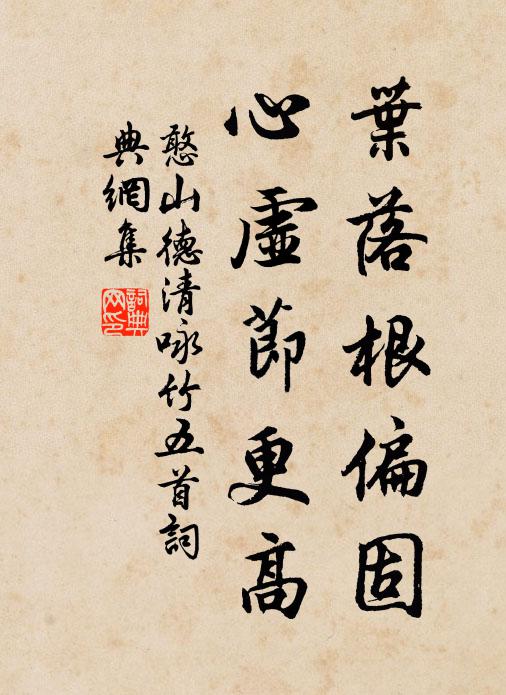 葉落根偏固
心虛節更高
憨山德清咏竹五首詞
典網集
詞典
网印